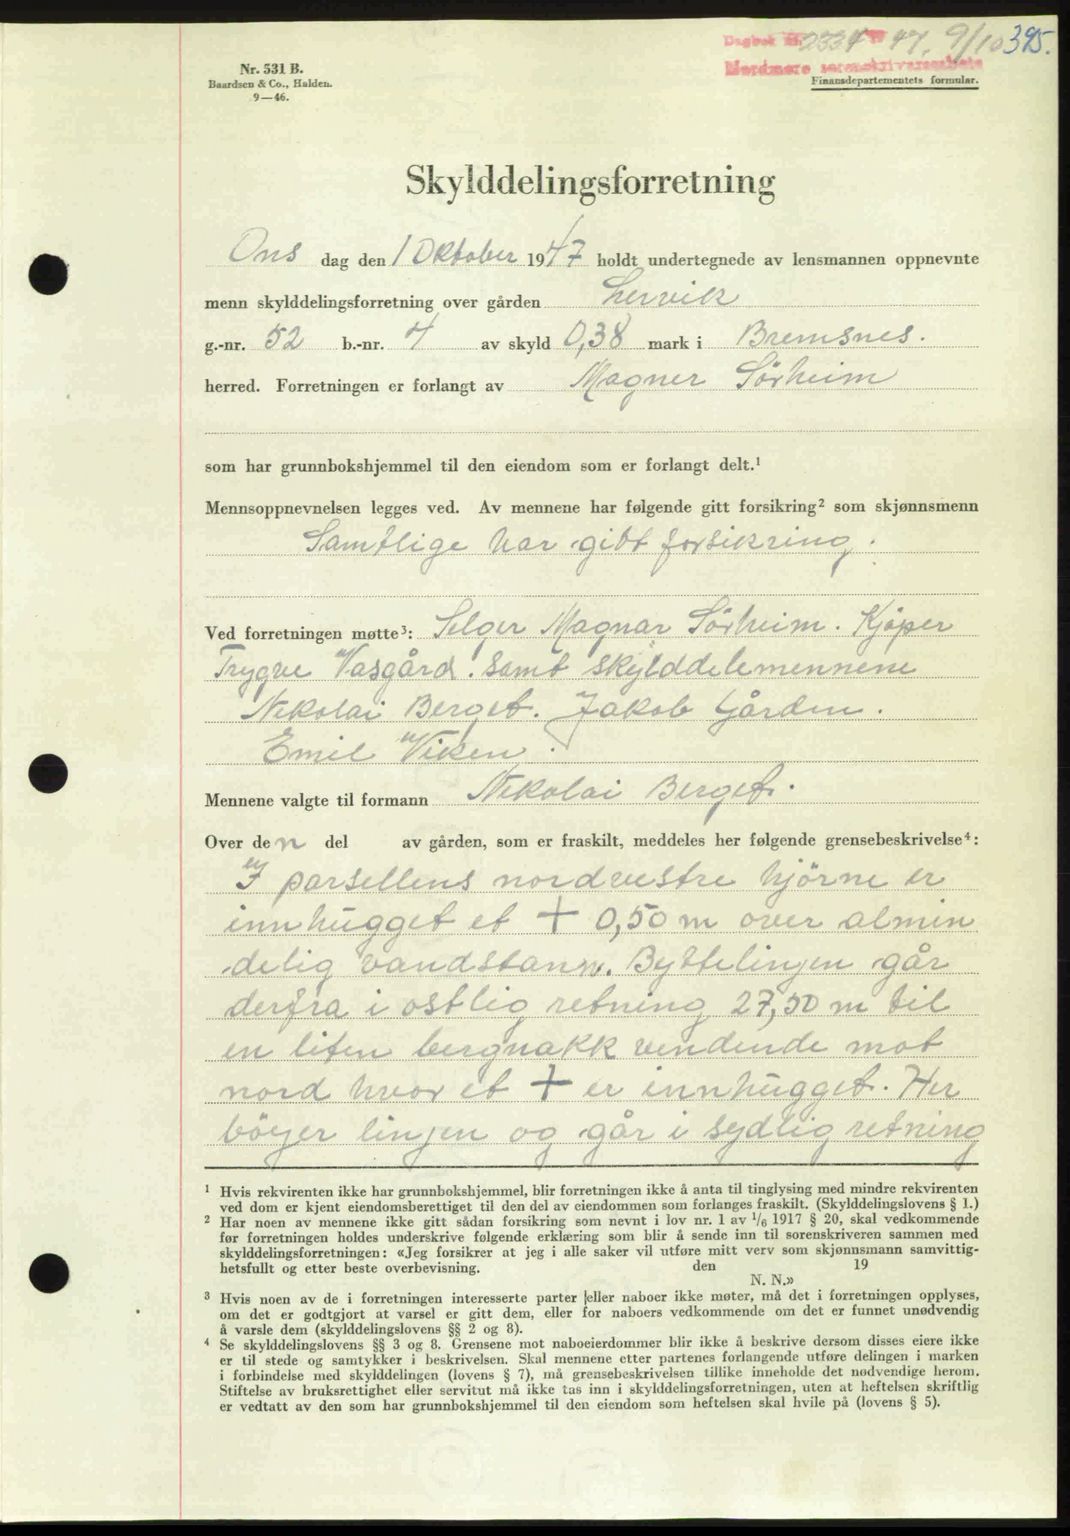 Dagbok nr. 2334 47. 9/10 395.
Nordmøre sorenskriverembete
Nr. 531 B.
Baardsen & Co., Halden.
9—46.
Finansdepartementets formular.
Skylddelingsforretning
Ons dag den 1 Oktober 1947 holdt undertegnede av lensmannen oppnevnte
menn skylddelingsforretning over gården Lervik
g.-nr. 52 b.-nr. 4 av skyld 0,38 mark i Bremsnes.
herred. Forretningen er forlangt av Magner Sörheim
som har grunnbokshjemmel til den eiendom som er forlangt delt.¹
Mennsoppnevnelsen legges ved. Av mennene har følgende gitt forsikring² som skjønnsmenn
Samtlige har gitt forsikring.
Ved forretningen møtte³: Selger Magnar Sörheim. Kjöper
Trygve Vasgård. samt skylddelemennene
Nikolai Berget. Jakob Gården.
Emil Viken.
Mennene valgte til formann Nikolai Berget.
Over den del av gården, som er fraskilt, meddeles her følgende grensebeskrivelse⁴:
I parsellens nordvestre hjörne er
innhugget et + 0,50 m over almin
delig vandstann. Byttelinjen går
derfra i ostlig retning 27,50 m til
en liten bergnakk vendende mot
nord hvor et + er innhugget. Her
böyer linjen og går i sydlig retning
¹ Hvis rekvirenten ikke har grunnbokshjemmel, blir forretningen ikke å anta til tinglysing med mindre rekvirenten
ved dom er kjent eiendomsberettiget til den del av eiendommen som forlanges fraskilt. (Skylddelingslovens § 1.)
² Har noen av mennene ikke gitt sådan forsikring som nevnt i lov nr. 1 av 1/6 1917 § 20, skal vedkommende
før forretningen holdes underskrive følgende erklæring som blir å sende inn til sorenskriveren sammen med
skylddelingsforretningen: «Jeg forsikrer at jeg i alle saker vil utføre mitt verv som skjønnsmann samvittig-
hetsfullt og etter beste overbevisning. den 19
N. N.»
³ Hvis noen av de i forretningen interesserte parter eller naboer ikke møter, må det i forretningen opplyses,
om det er godtgjort at varsel er gitt dem, eller for naboers vedkommende om det er funnet unødvendig
å varsle dem (skylddelingslovens §§ 2 og 8).
⁴ Se skylddelingslovens §§ 3 og 8. Grensene mot naboeierdommer blir ikke å beskrive dersom disses eiere ikke
er til stede og samtykker i beskrivelsen. Skal mennene etter partenes forlangende utføre delingen i marken
i forbindelse med skylddelingen (lovens § 7), må grensebeskrivelsen tillike inneholde det nødvendige herom.
Stiftelse av bruksrettighet eller servitut må ikke tas inn i skylddelingsforretningen, uten at heftelsen skriftlig
er vedtatt av den som har grunnbokshjemmel til den eiendom som heftelsen skal hvile på (lovens § 5).